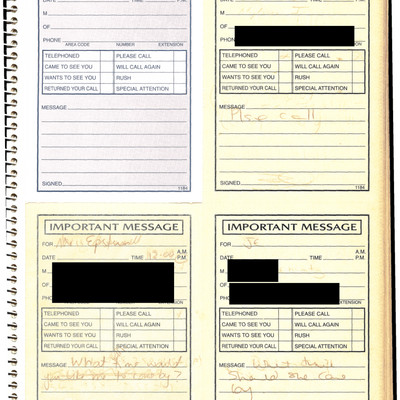 DATE TIME P.M.
M
OF
PHONE
AREA CODE NUMBER EXTENSION
TELEPHONED PLEASE CALL
CAME TO SEE YOU WILL CALL AGAIN
WANTS TO SEE YOU RUSH
RETURNED YOUR CALL SPECIAL ATTENTION
MESSAGE
SIGNED
1184
DATE TIME P.M.
M
OF
PHONE
AREA CODE NUMBER EXTENSION
TELEPHONED PLEASE CALL
CAME TO SEE YOU WILL CALL AGAIN
WANTS TO SEE YOU RUSH
RETURNED YOUR CALL SPECIAL ATTENTION
MESSAGE
Plse call
SIGNED
1184
IMPORTANT MESSAGE
FOR
A.M.
DATE TIME 12:00 P.M.
M
OF
PHONE
TELEPHONED PLEASE CALL
CAME TO SEE YOU WILL CALL AGAIN
WANTS TO SEE YOU RUSH
RETURNED YOUR CALL SPECIAL ATTENTION
MESSAGE What time would
you like me to
IMPORTANT MESSAGE
FOR JE
A.M.
DATE TIME P.M.
M
OF
PHO
EXTENSION
TELEPHONED PLEASE CALL
CAME TO SEE YOU WILL CALL AGAIN
WANTS TO SEE YOU RUSH
RETURNED YOUR CALL SPECIAL ATTENTION
MESSAGE What time
should she come
by